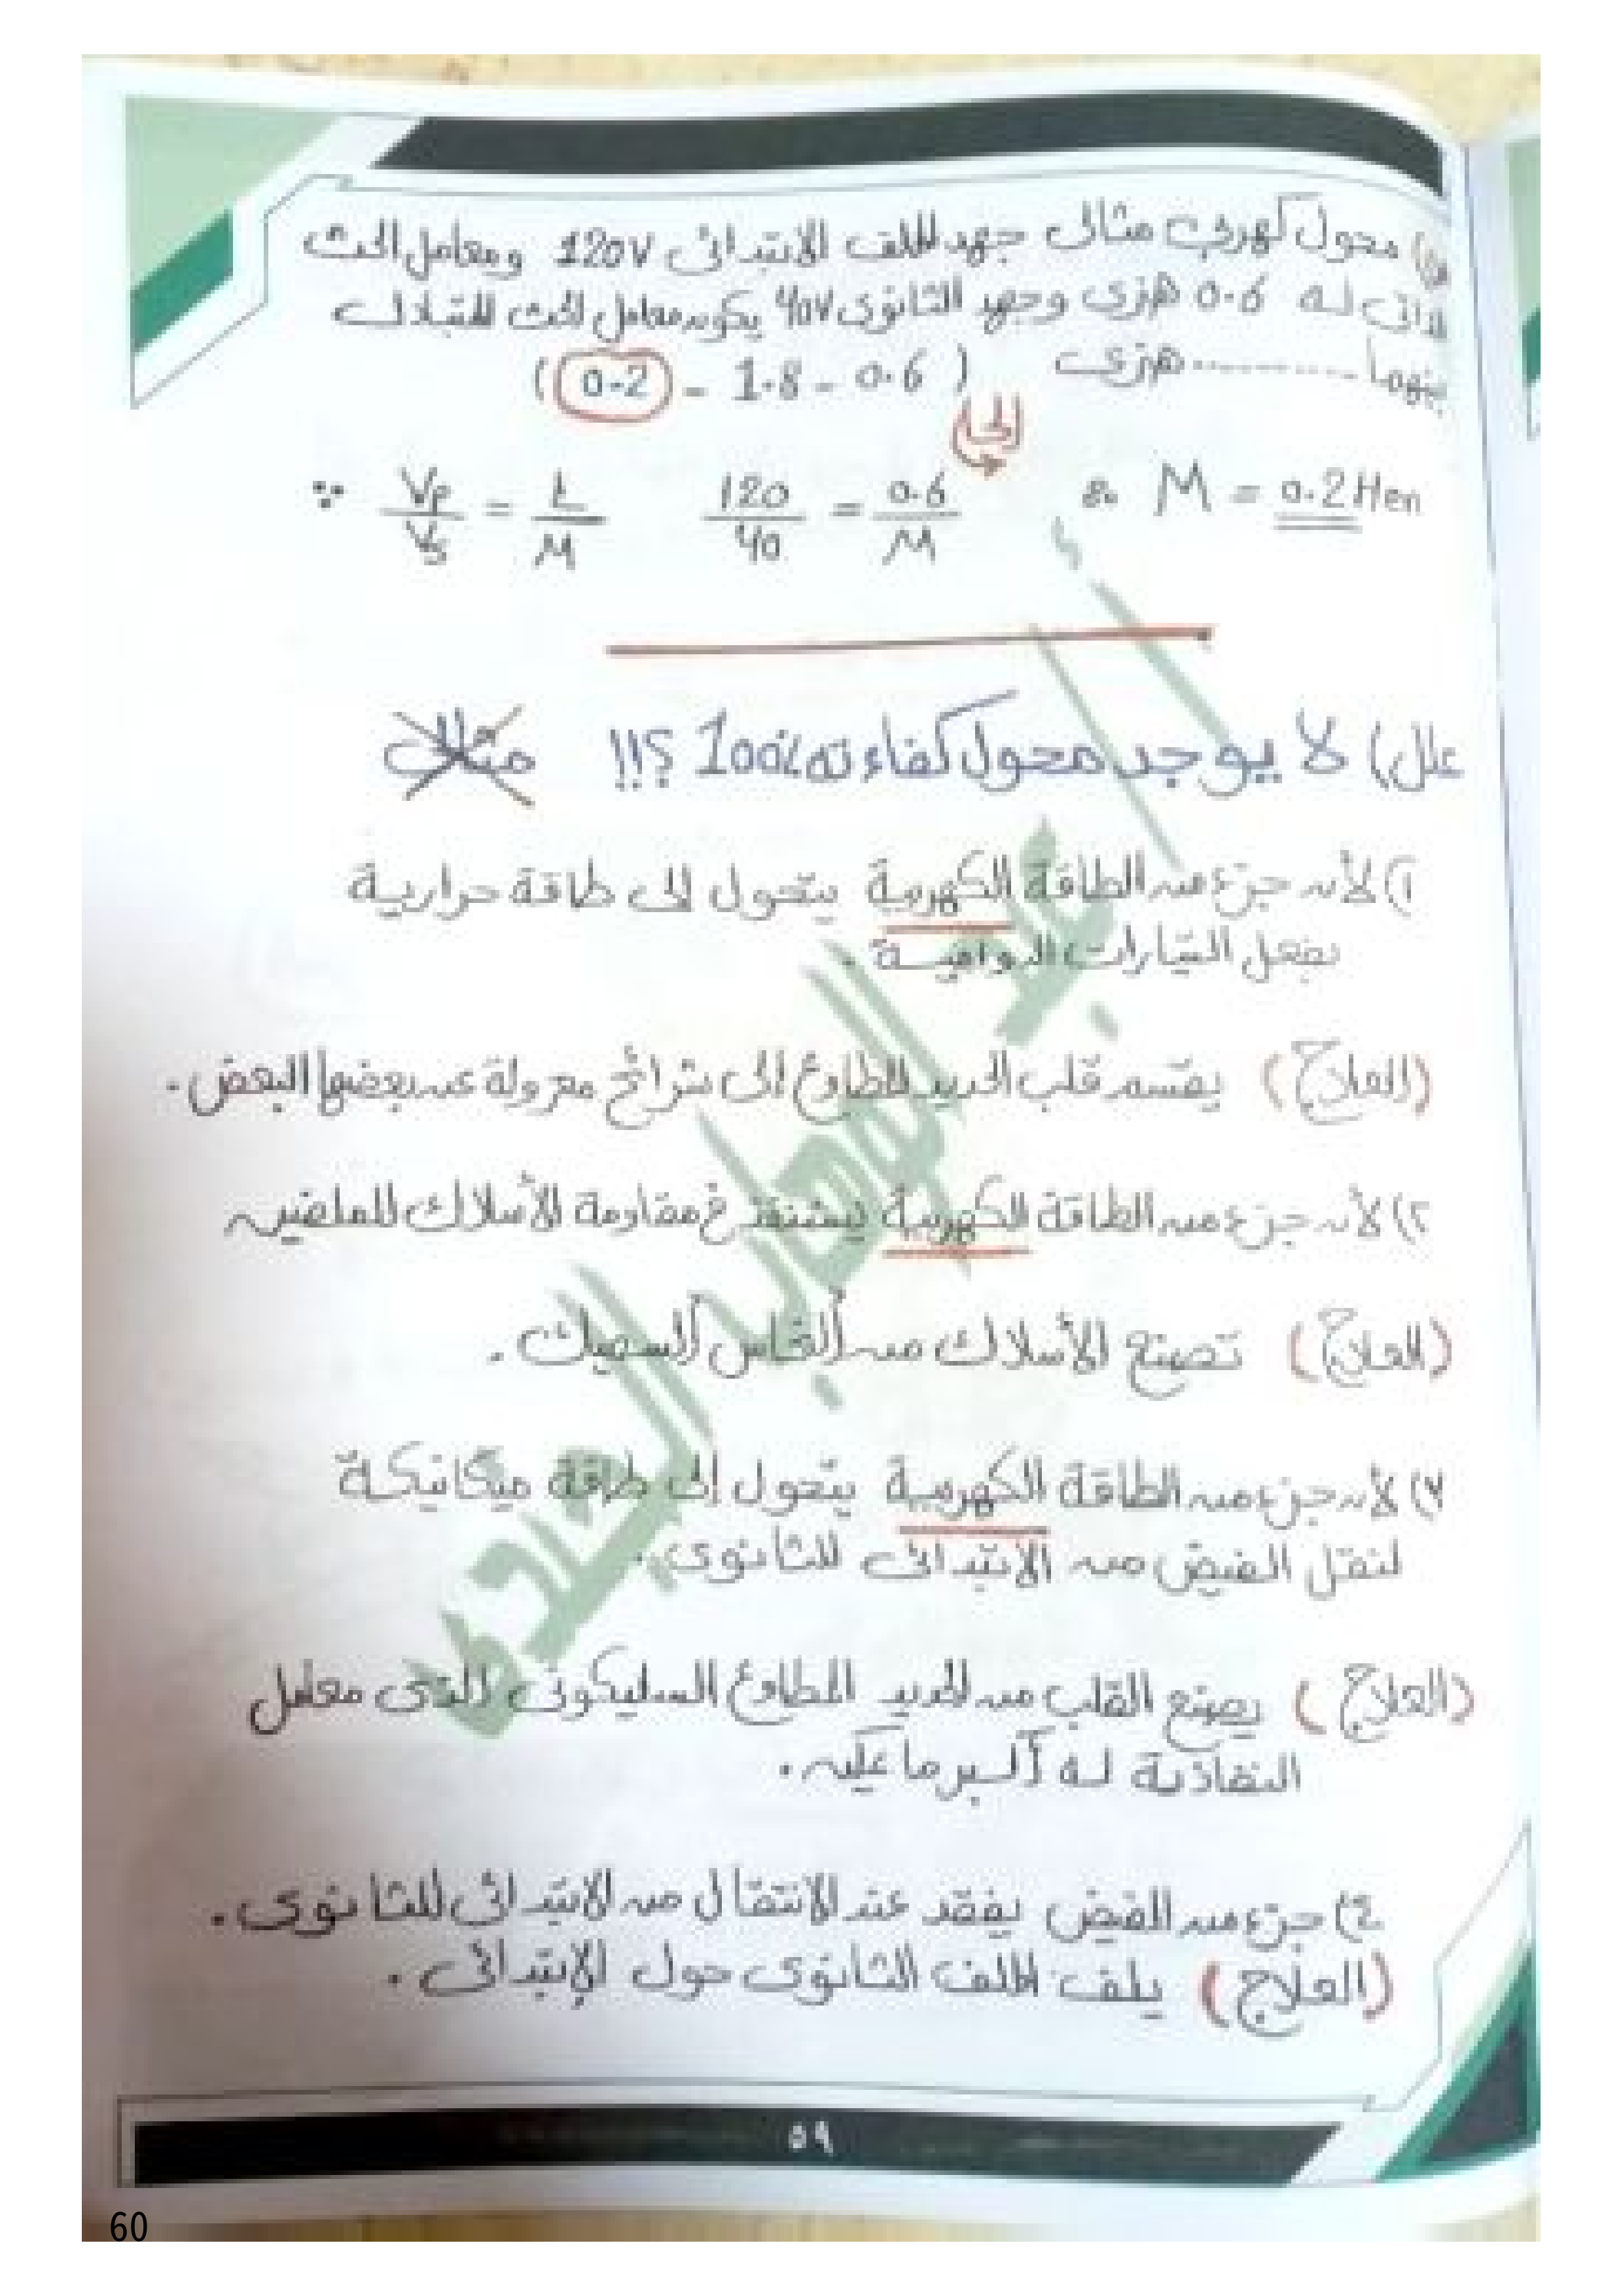 س) محول كهربى مثالى جهد الملف الابتدائى 120V ومعامل الحث
الذاتى له 0.6 هنرى وجهد الثانوى 40V يكون معامل الحث المتبادل
بينهما ........... هنرى ( 0.6 - 1.8 - 0.2 )
الحل
∵ Vp/Vs = L/M 120/40 = 0.6/M ∴ M = 0.2 Hen
علل) لا يوجد محول كفاءته 100٪ ؟!! مثالى
١) لأن جزء من الطاقة الكهربية يتحول إلى طاقة حرارية
بفعل التيارات الدوامية .
(العلاج) يقسم قلب الحديد المطاوع إلى شرائح معزولة عن بعضها البعض .
٢) لأن جزء من الطاقة الكهربية يستنفذ فى مقاومة الأسلاك للملفين
(العلاج) تصنع الأسلاك من النحاس السميك .
٣) لأن جزء من الطاقة الكهربية يتحول إلى طاقة ميكانيكة
لنقل الفيض من الابتدائى للثانوى .
(العلاج) يصنع القلب من الحديد المطاوع السليكونى الذى معامل
النفاذية له أكبر ما يمكن .
٤) جزء من الفيض يفقد عند الانتقال من الابتدائى للثانوى .
(العلاج) يلف الملف الثانوى حول الإبتدائى .
٥٩
60